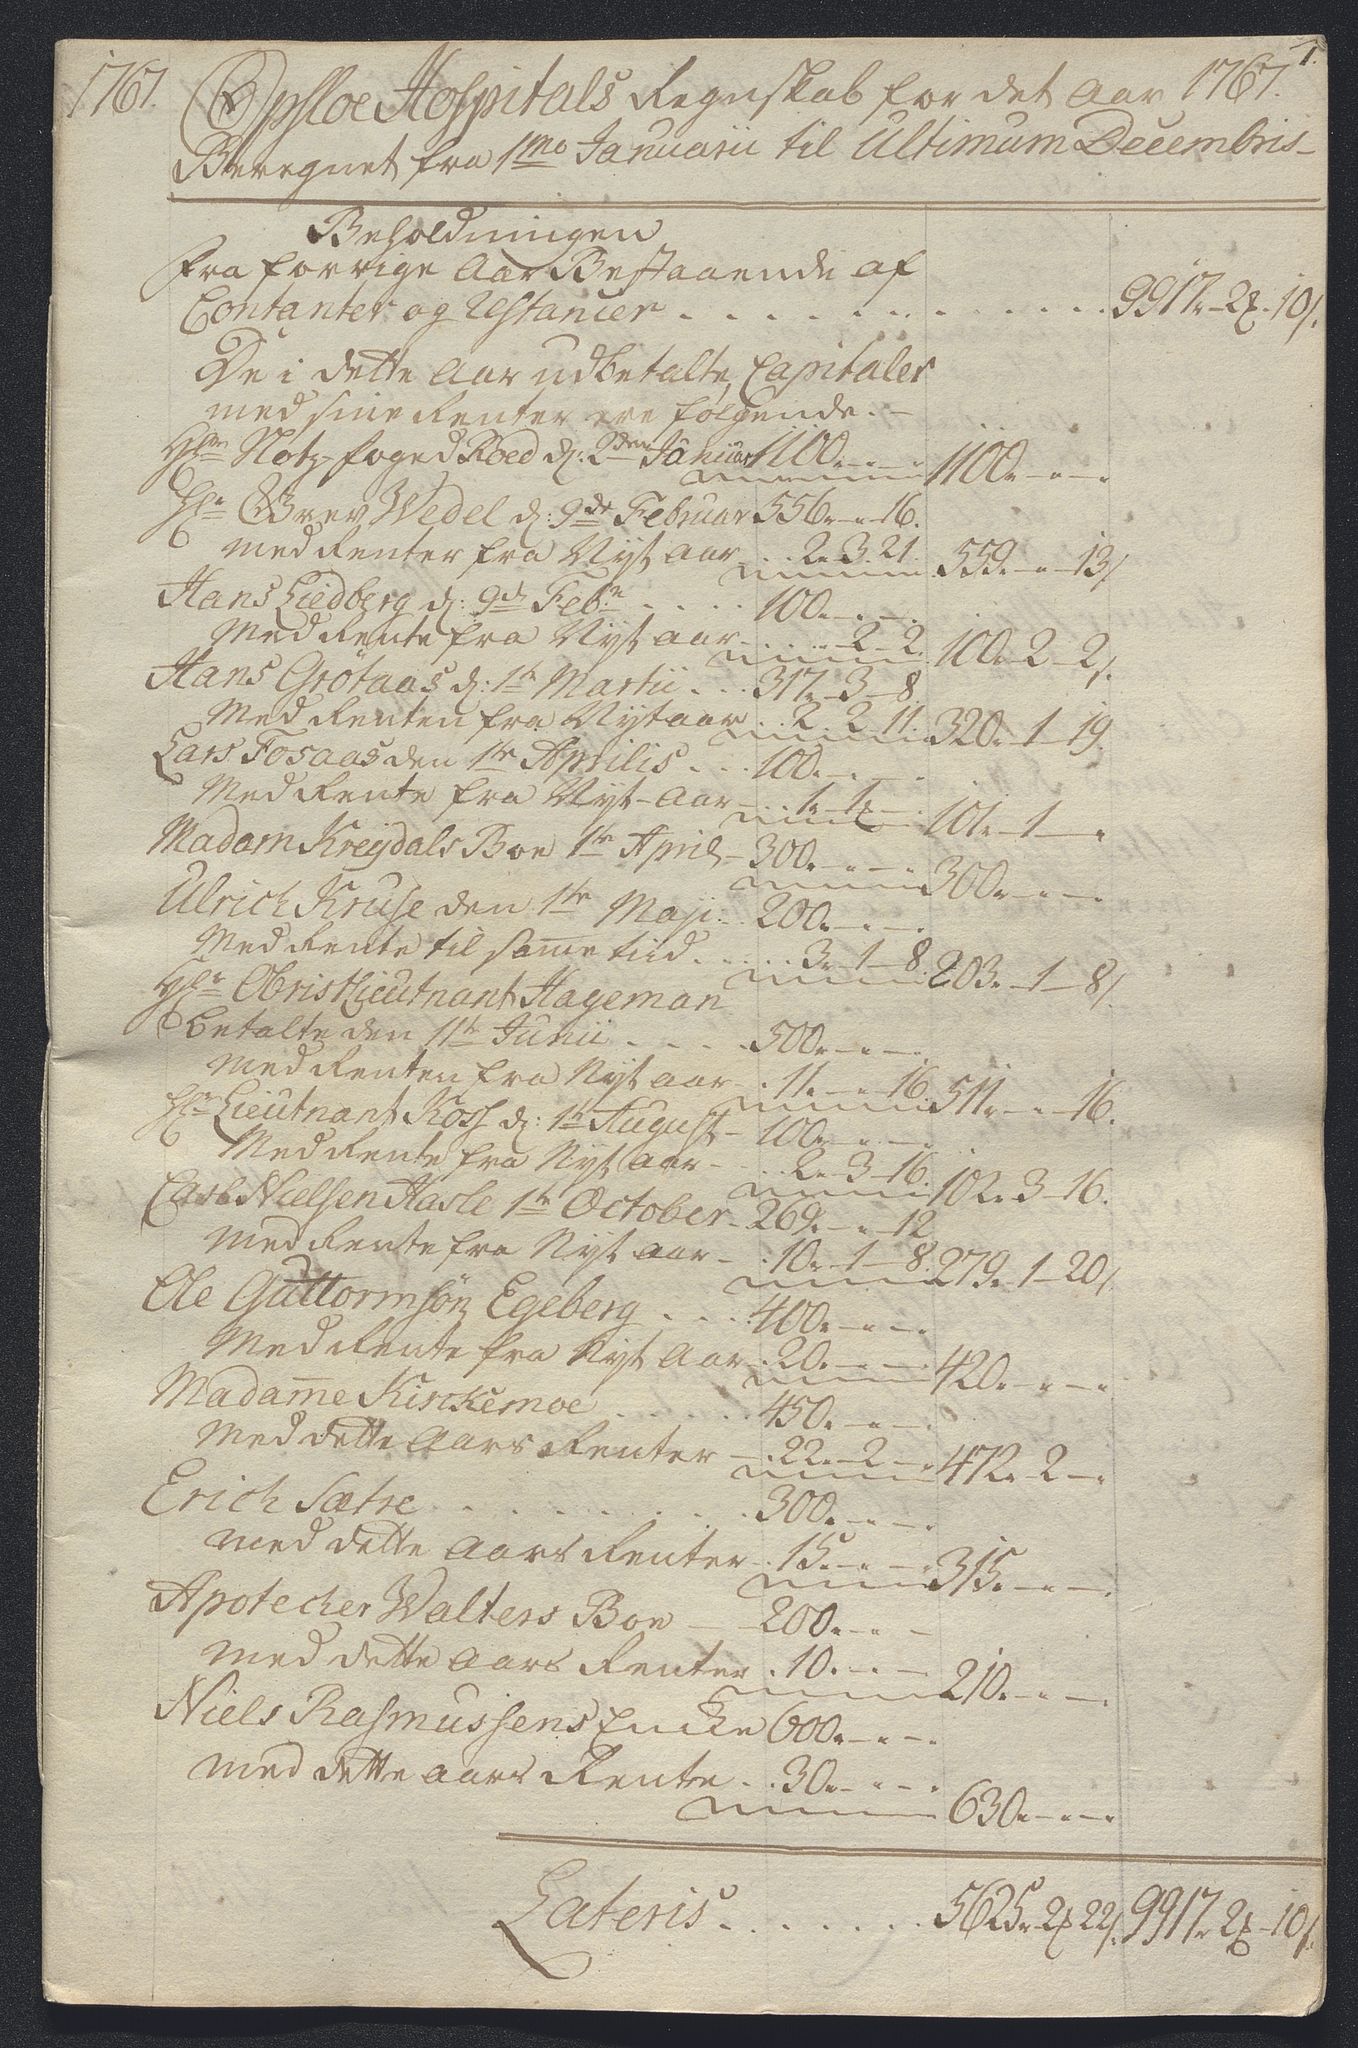 1.
1767. Opsloe Hospitals Regnskab for det Aar 1767.
Beregnet fra 1mo Januarii til Ultimum Decembris
Beholdningen
Fra forrige Aar Bestaaende af
Contanter og Restancer . . . . . . . . 9917 - 2 - 10 s.
De i dette Aar udbetalte Capitaler
med sine Renter ere følgende. -
Hr Foged Roed d: 2den Januar 1100. - - - 1100. - - -
Hr Grev Wedel d: 9de Februar 556. - 16.
med Renter fra Nyt aar . . 2. 3. 21. 559. - 13 s
Hans Liedberg d: 9de Febr. . . . . 100. - - -
Med Rente fra Nyt aar - . . . 2 - 2. 100. 2 - 2 s.
Hans Grötaas d: 1te Martii . . . 317. 3 - 8
Med Renten fra Nyt aar . . 2. 2 11. 320. 1 - 19.
Lars Fosaas den 1te Aprilis . . . 100. - - -
Med Rente fra Nyt - Aar - . . 1. 1 - - 101. - 1 - -
Madam Kreydals Boe 1te April - 300. - - - 300. - - -
Ulrich Kruse den 1te Maji . . 200. - - -
Med Rente til samme tiid . . . . . 3. 1 - 8. 203. - 1 - 8 s.
Hr Obristlieutnant Hageman
betalte den 11te Junii . . . . 500. - - -
med Renten fra Nyt aar - . 11. - 16. 511. - - 16.
Hr Lieutnant Koss d: 1te August - 100. - - -
Med Rente fra Nyt aar - . . . 2. 3 - 16. 102. 3 - 16.
Nielsen Hasle 1te October - 269. - - 12
Med Rente fra Nyt aar - . 10. - 1 - 8. 279. 1 - 20 s
Ole Guttormsøn Egeberg . . . . 400. - - -
Med Rente fra Nyt Aar - . 20. - - - 420. - - -
Madame Kirckemoe . . . . . . 450. - - -
Med dette Aars Renter - . 22. - 2 - - 472. 2 - -
Erich Sætre . . . . . . . . 300. - - -
med dette Aars Renter . 15. - - - 315. - - -
Apotecher Walters Boe - - 200. - - -
med dette Aars Renter . 10. - - - 210. - - -
Niels Rasmussens Encke 600. - - -
med dette Aars Rente . . 30. - - - 630. - - -
Lateris . . . . . . . 5625. 2 22 s. 9917. 2 - 10 s.